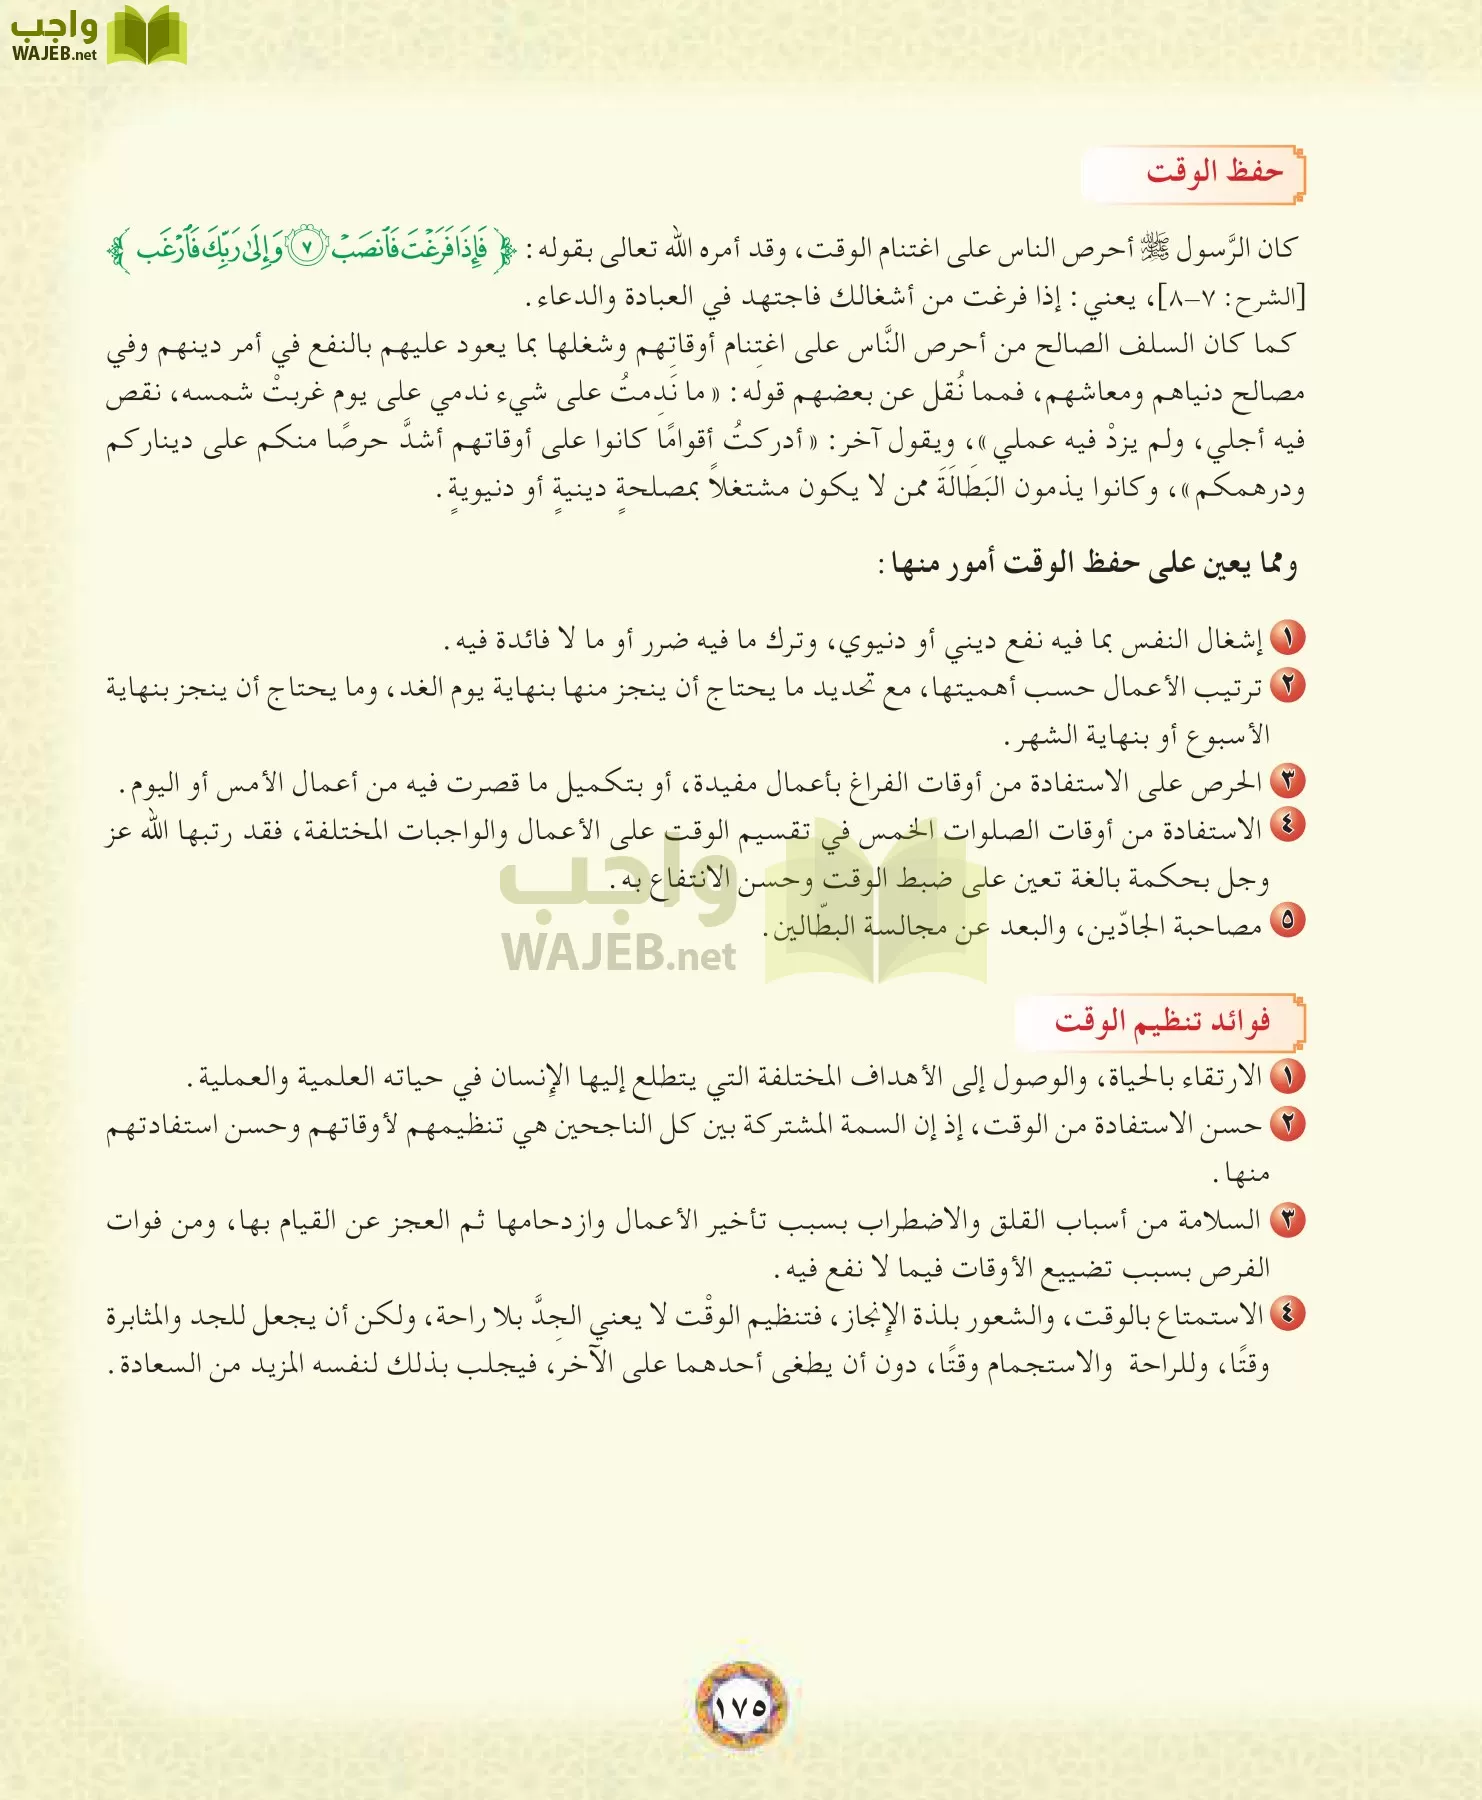 واجب
WAJEB.net
حفظ الوقت
كان الرَّسول ﷺ أحرص الناس على اغتنام الوقت، وقد أمره الله تعالى بقوله: ﴿فَإِذَا فَرَغْتَ فَٱنصَبْ ٧ وَإِلَىٰ رَبِّكَ فَٱرْغَب﴾
[الشرح: ٧-٨]، يعني: إذا فرغت من أشغالك فاجتهد في العبادة والدعاء.
كما كان السلف الصالح من أحرص النَّاس على اغتِنام أوقاتِهم وشغلها بما يعود عليهم بالنفع في أمر دينهم وفي
مصالح دنياهم ومعاشهم، فمما نُقل عن بعضهم قوله: «ما نَدِمتُ على شيء ندمي على يوم غربتْ شمسه، نقص
فيه أجلي، ولم يزدْ فيه عملي»، ويقول آخر: «أدركتُ أقوامًا كانوا على أوقاتهم أشدَّ حرصًا منكم على ديناركم
ودرهمكم»، وكانوا يذمون البَطَالَةَ ممن لا يكون مشتغلاً بمصلحةٍ دينيةٍ أو دنيويةٍ.
ومما يعين على حفظ الوقت أمور منها:
١ إشغال النفس بما فيه نفع ديني أو دنيوي، وترك ما فيه ضرر أو ما لا فائدة فيه.
٢ ترتيب الأعمال حسب أهميتها، مع تحديد ما يحتاج أن ينجز منها بنهاية يوم الغد، وما يحتاج أن ينجز بنهاية
الأسبوع أو بنهاية الشهر.
٣ الحرص على الاستفادة من أوقات الفراغ بأعمال مفيدة، أو بتكميل ما قصرت فيه من أعمال الأمس أو اليوم.
٤ الاستفادة من أوقات الصلوات الخمس في تقسيم الوقت على الأعمال والواجبات المختلفة، فقد رتبها الله عز
وجل بحكمة بالغة تعين على ضبط الوقت وحسن الانتفاع به.
٥ مصاحبة الجادّين، والبعد عن مجالسة البطّالين.
واجب
WAJEB.net
فوائد تنظيم الوقت
١ الارتقاء بالحياة، والوصول إلى الأهداف المختلفة التي يتطلع إليها الإنسان في حياته العلمية والعملية.
٢ حسن الاستفادة من الوقت، إذ إن السمة المشتركة بين كل الناجحين هي تنظيمهم لأوقاتهم وحسن استفادتهم
منها.
٣ السلامة من أسباب القلق والاضطراب بسبب تأخير الأعمال وازدحامها ثم العجز عن القيام بها، ومن فوات
الفرص بسبب تضييع الأوقات فيما لا نفع فيه.
٤ الاستمتاع بالوقت، والشعور بلذة الإنجاز، فتنظيم الوقْت لا يعني الجِدَّ بلا راحة، ولكن أن يجعل للجد والمثابرة
وقتًا، وللراحة والاستجمام وقتًا، دون أن يطغى أحدهما على الآخر، فيجلب بذلك لنفسه المزيد من السعادة.
١٧٥